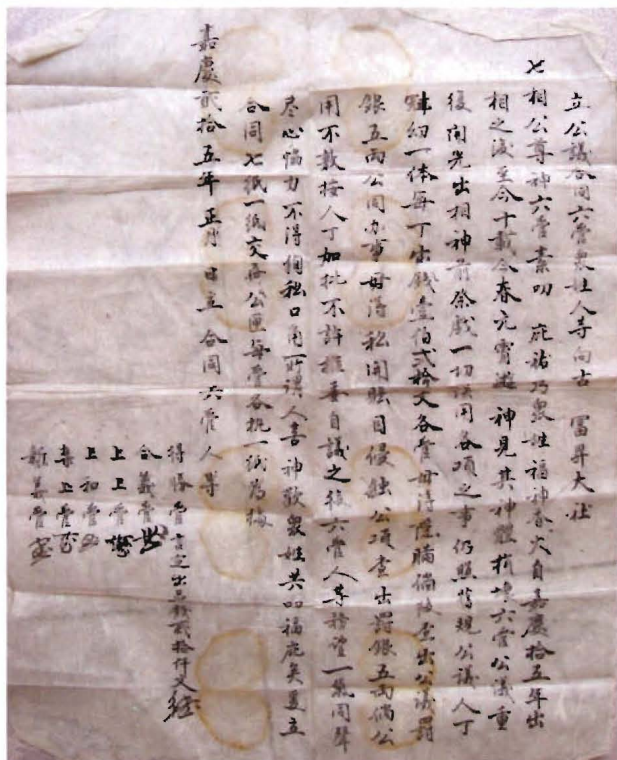 立公議合同六管衆姓人等向古　富昇大社
七相公尊神六管素叨　庇祐乃衆姓福神香火自嘉慶拾五年出
相之後至今十載今春元宵遊　神見其神體損壞六管公議重
後開光出相神前祭戲一切議用各項之事仍照舊規公議人丁
肆幼一体每丁出錢壹伯弍拾文各管毋得隱瞞倘後查出公議罰
銀五兩公同办事毋得私開賬目侵蝕公項查出罰銀五兩倘公
用不敷按人丁加批不許推委自議之後六管人等務望一氣同聲
尽心協力不得徇私口角所謂人喜神歡衆姓共叨福庇矣爰立
合同七紙一紙交存公匣每管各执一紙為據
嘉慶貳拾五年正月　日立合同六管人等
得勝管言定出呂錢貳拾仟文
合義管
上上管
上和管
上管
義管